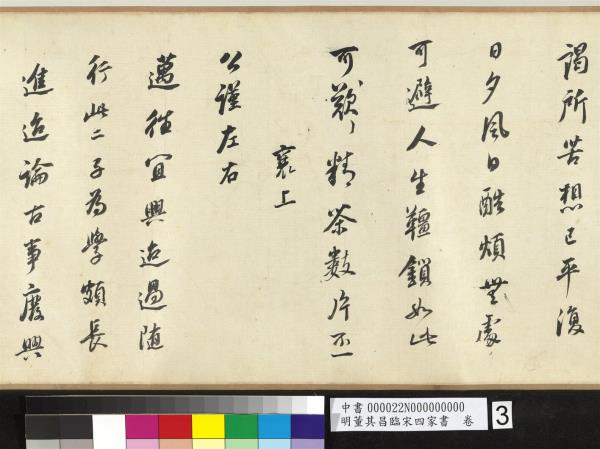 謁所苦想已平復
日夕風日酷煩無處
可避人生韁鎖如此
可歎〻精茶數片不一
襄上
公謹左右
邁往宜興迨過隨
行此二子為學頗長
進迨論古事廢興
中書 000022N000000000
明董其昌臨宋四家書 卷
3